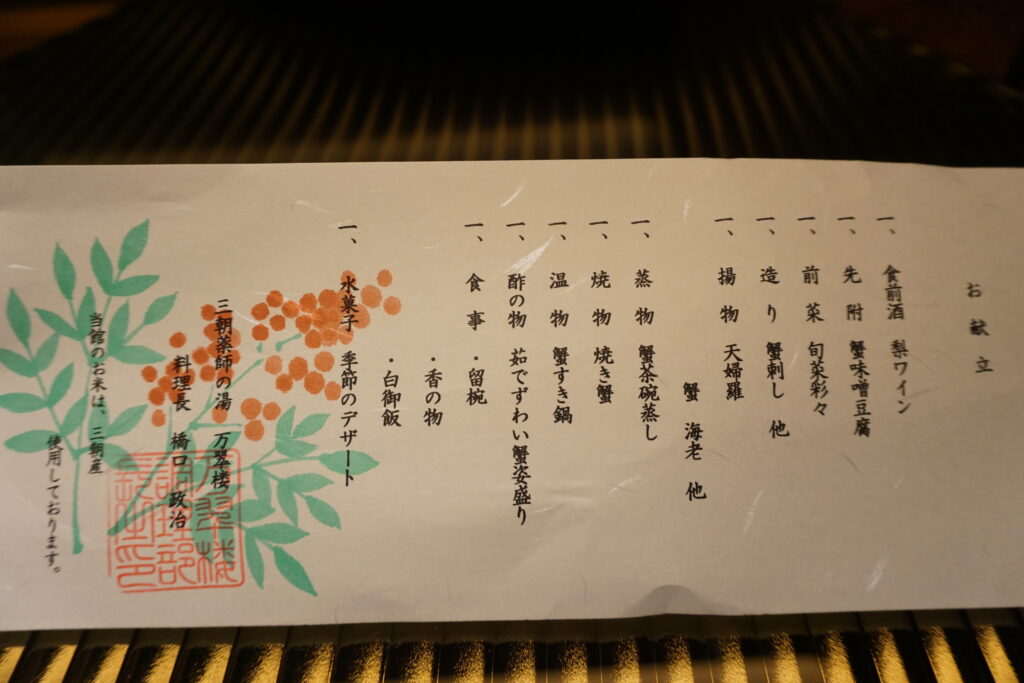 お献立
一、食前酒 梨ワイン
一、先附 蟹味噌豆腐
一、前菜 旬菜彩々
一、造り 蟹刺し 他
一、揚物 天婦羅
蟹 海老 他
一、蒸物 蟹茶碗蒸し
一、焼物 焼き蟹
一、温物 蟹すき鍋
一、酢の物 茹でずわい蟹姿盛り
一、食事 ・留椀
・香の物
・白御飯
一、水菓子 季節のデザート
三朝薬師の湯 万翠楼
料理長 橋口 政治
当館のお米は、三朝産
使用しております。
万翠楼
調理部